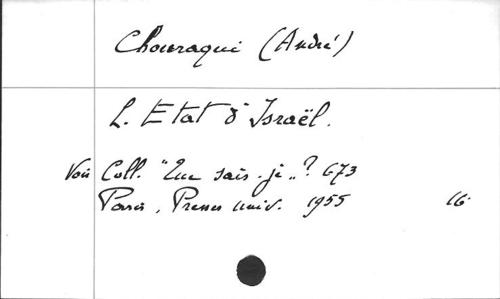 Chouraqui (André)
L. Etat d'Israël.
Voir Coll. "Que sais-je"? 673
Paris, Presses univ. 1955 16